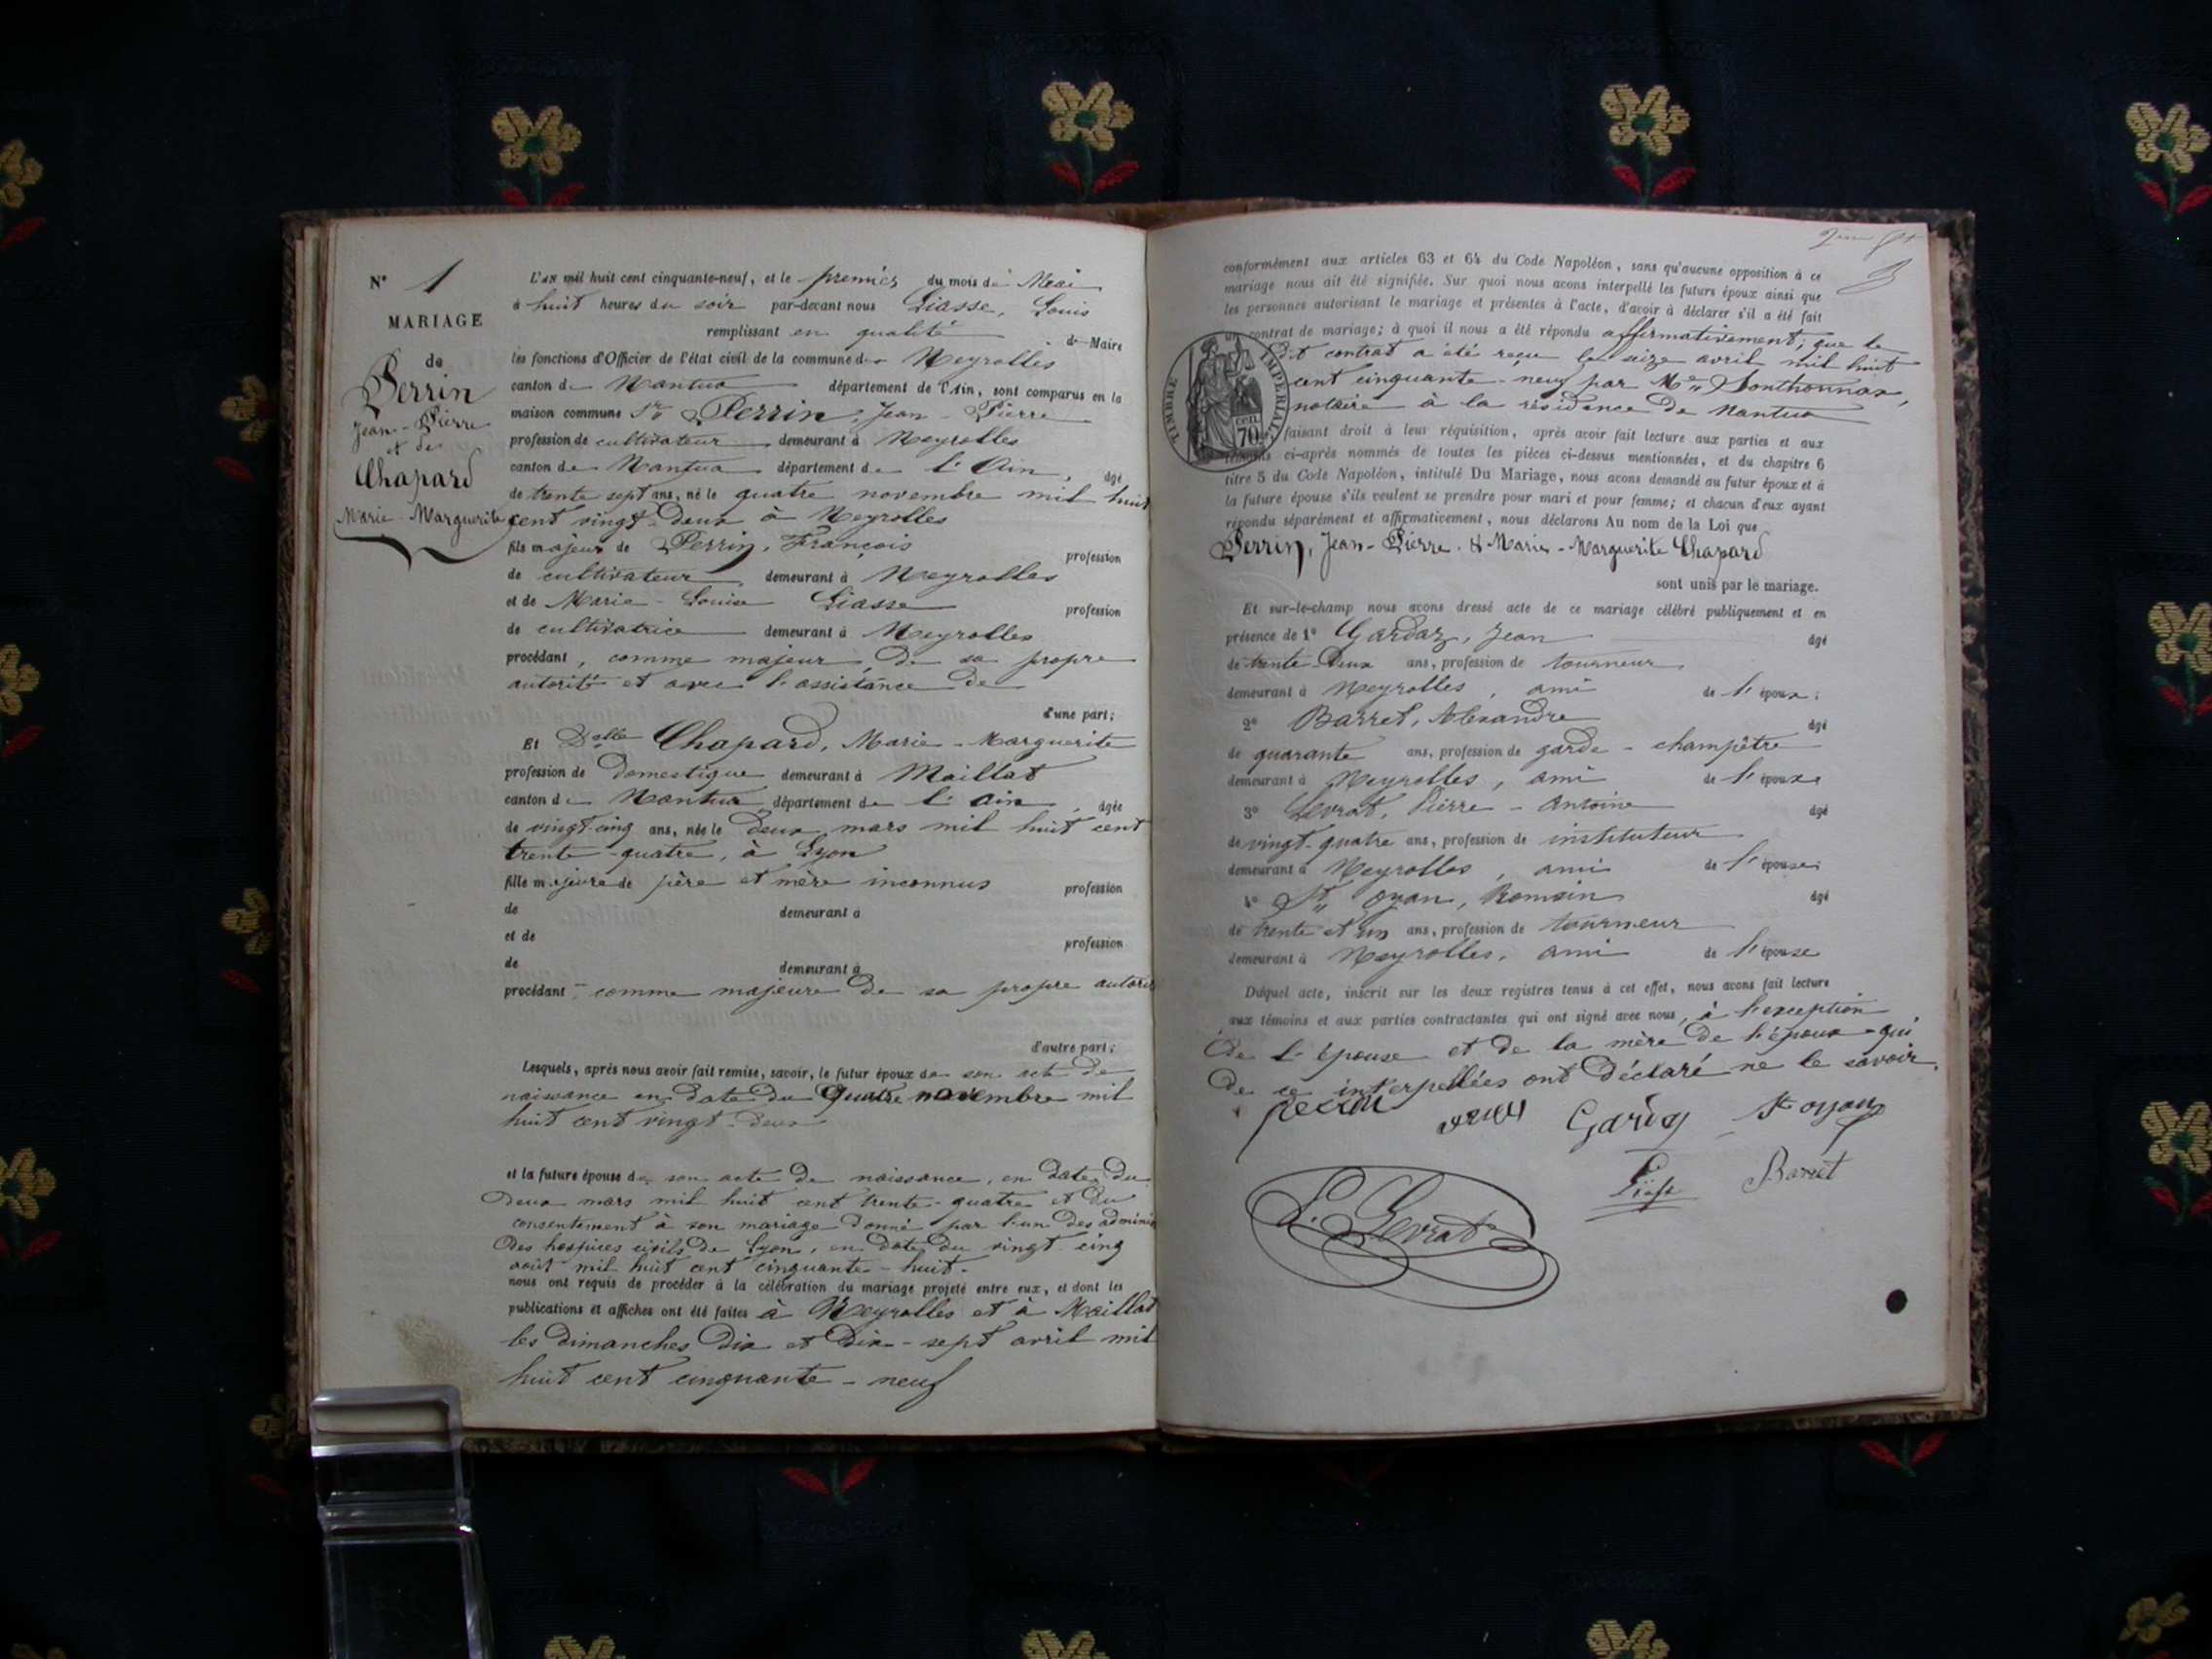 N° 1
MARIAGE
de
Perrin
Jean-Pierre
et de
Chapard
Marie-Marguerite
L'an mil huit cent cinquante-neuf, et le premier du mois de Mai
à huit heures du soir par-devant nous Liasse, Louis
remplissant en qualité de Maire
les fonctions d'Officier de l'état civil de la commune de Neyrolles
canton de Nantua département de l'Ain, sont comparus en la
maison commune Sr Perrin, Jean-Pierre
profession de cultivateur demeurant à Neyrolles
canton de Nantua département de l'Ain, âgé
de trente sept ans, né le quatre novembre mil huit
cent vingt-deux à Neyrolles
fils majeur de Perrin, François profession
de cultivateur demeurant à Neyrolles
et de Marie-Louise Liasse profession
de cultivatrice demeurant à Neyrolles
procédant, comme majeur, de sa propre
autorité et avec l'assistance de
d'une part;
Et Delle Chapard, Marie-Marguerite
profession de domestique demeurant à Maillat
canton de Nantua département de l'Ain, âgée
de vingt-cinq ans, née le deux mars mil huit cent
trente-quatre, à Lyon
fille majeure de père et mère inconnus profession
de demeurant à
et de profession
de demeurant à
procédant comme majeure de sa propre autorité
d'autre part;
Lesquels, après nous avoir fait remise, savoir, le futur époux de son acte de
naissance en date du quatre novembre mil
huit cent vingt-deux
et la future épouse de son acte de naissance, en date du
deux mars mil huit cent trente-quatre et du
consentement à son mariage donné par l'un des admini
des hospices civils de Lyon, en date du vingt-cinq
août mil huit cent cinquante-huit.
nous ont requis de procéder à la célébration du mariage projeté entre eux, et dont les
publications et affiches ont été faites à Neyrolles et à Maillat
les dimanches dix et dix-sept avril mil
huit cent cinquante-neuf
conformément aux articles 63 et 64 du Code Napoléon, sans qu'aucune opposition à ce
mariage nous ait été signifiée. Sur quoi nous avons interpellé les futurs époux ainsi que
les personnes autorisant le mariage et présentes à l'acte, d'avoir à déclarer s'il a été fait
un contrat de mariage; à quoi il nous a été répondu affirmativement; que le
dit contrat a été reçu le seize avril mil huit
cent cinquante-neuf par Me Sonthonnax,
notaire à la résidence de Nantua
TIMBRE IMPERIAL
70 cen.
faisant droit à leur réquisition, après avoir fait lecture aux parties et aux
témoins ci-après nommés de toutes les pièces ci-dessus mentionnées, et du chapitre 6
titre 5 du Code Napoléon, intitulé Du Mariage, nous avons demandé au futur époux et à
la future épouse s'ils veulent se prendre pour mari et pour femme; et chacun d'eux ayant
répondu séparément et affirmativement, nous déclarons Au nom de la Loi que
Perrin, Jean-Pierre & Marie-Marguerite Chapard
sont unis par le mariage.
Et sur-le-champ nous avons dressé acte de ce mariage célébré publiquement et en
présence de 1° Gardaz, Jean âgé
de trente-deux ans, profession de tourneur
demeurant à Neyrolles, ami de l'époux;
2° Barret, Alexandre âgé
de quarante ans, profession de garde-champêtre
demeurant à Neyrolles, ami de l'époux
3° Levrat, Pierre-Antoine âgé
de vingt-quatre ans, profession de instituteur
demeurant à Neyrolles, ami de l'épouse
4° St Oyan, Romain âgé
de trente et un ans, profession de tourneur
demeurant à Neyrolles, ami de l'épouse
Duquel acte, inscrit sur les deux registres tenus à cet effet, nous avons fait lecture
aux témoins et aux parties contractantes qui ont signé avec nous, à l'exception
de l'épouse et de la mère de l'époux qui
de ce interpellées ont déclaré ne le savoir.
perrin Gardaz St oyan
Liasse Barret
Levrat